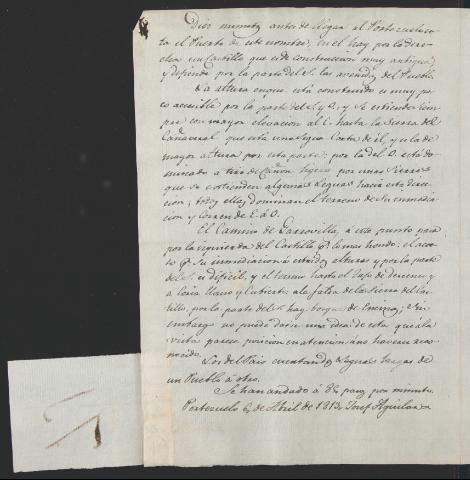 Diez minutos antes de llegar al Portezuelo es-
tá el Puerto de este nombre, en el hay por la dere-
cha un Castillo que es de construccion muy antigua
y defiende por la parte del S. las avenidas del Pueblo.
La altura en que está construido es muy po-
co accesible por la parte del S. y O. y se estiende siem-
pre con mayor elevacion al E. hasta la Sierra del
Cañaveral que está una legua corta de él, y es la de
mayor altura por esta parte: por la del O. está do-
minado a tiro de Cañon ligero por unas Sierras
que se estienden algunas leguas hacia esta direc-
cion; todas ellas dominan el terreno de su inmedia-
cion y corren de E. á O.
El Camino de Garrovillas á este puerto pasa
por la izquierda del Castillo p.r lo mas hondo: el acce-
so p.r su inmediacion á estas alturas y por la parte
del S. es dificil, y el terreno hasta el Tajo de
llano y cubierto: a la falda de la Sierra del Cas-
tillo, por la parte del S. hay bosque de Encina; sin
embargo no puedo darle una idea de esta que á la
vista parece posicion en atencion á no haverse re-
conocido.
Los del Pais cuentan dos leguas largas de
un Pueblo á otro.
Se han andado á 82 pasos por minuto.
Portezuelo 6 de Abril de 1813. Josef Aguilar